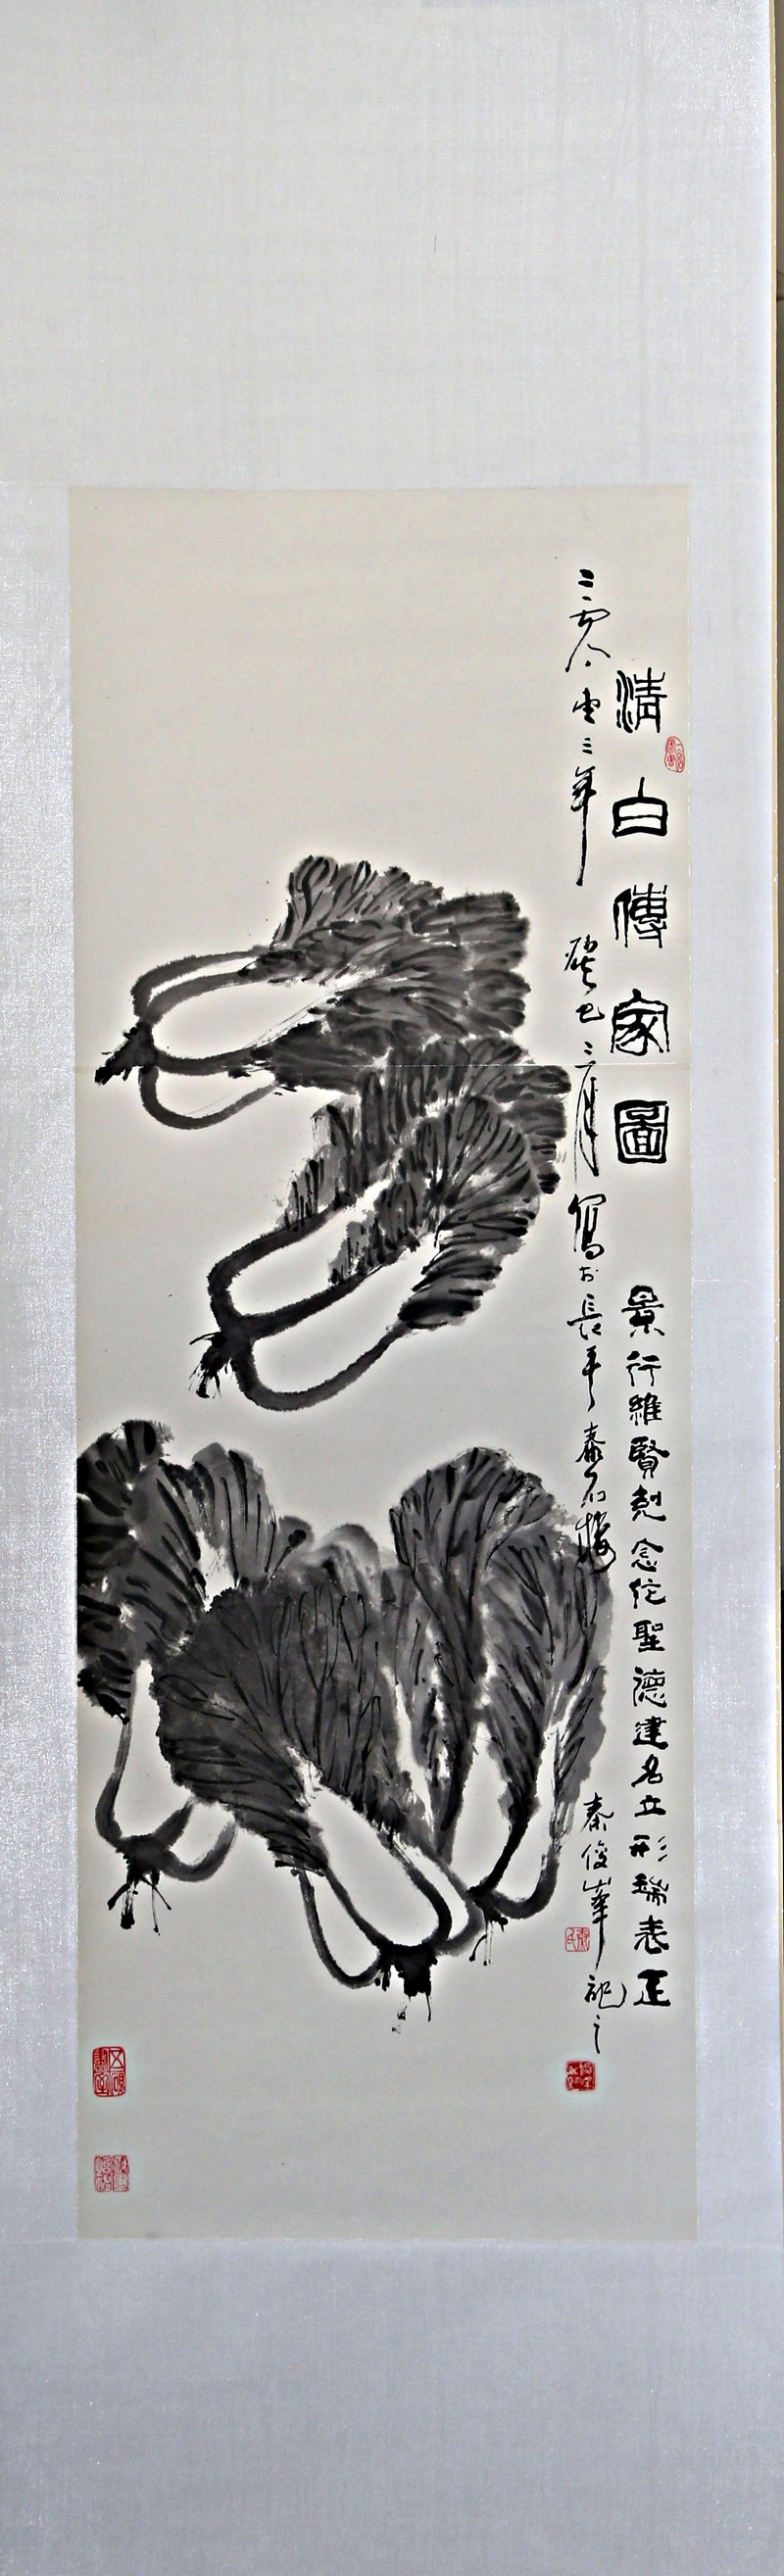 清白傳家圖
景行維賢剋念作聖德建名立形端表正
二零一三年 癸巳二月 寫於長平泰石樓
秦俊峯記之